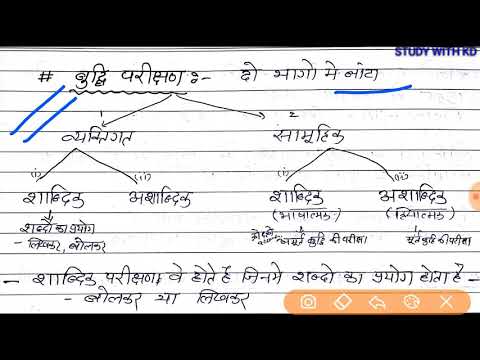 STUDY WITH KD
# बुद्धि परीक्षण :- दो भागो मे बांटा
1 2
व्यक्तिगत सामूहिक
(i) (ii) (i) (ii)
शाब्दिक अशाब्दिक शाब्दिक अशाब्दिक
(भाषात्मक) (क्रियात्मक)
शब्दों का प्रयोग
- लिखकर, बोलकर अमूर्त बुद्धि की परीक्षा मूर्त बुद्धि की परीक्षा
- शाब्दिक परीक्षण वे होते है जिनमे शब्दो का प्रयोग होता है -
- बोलकर या लिखकर